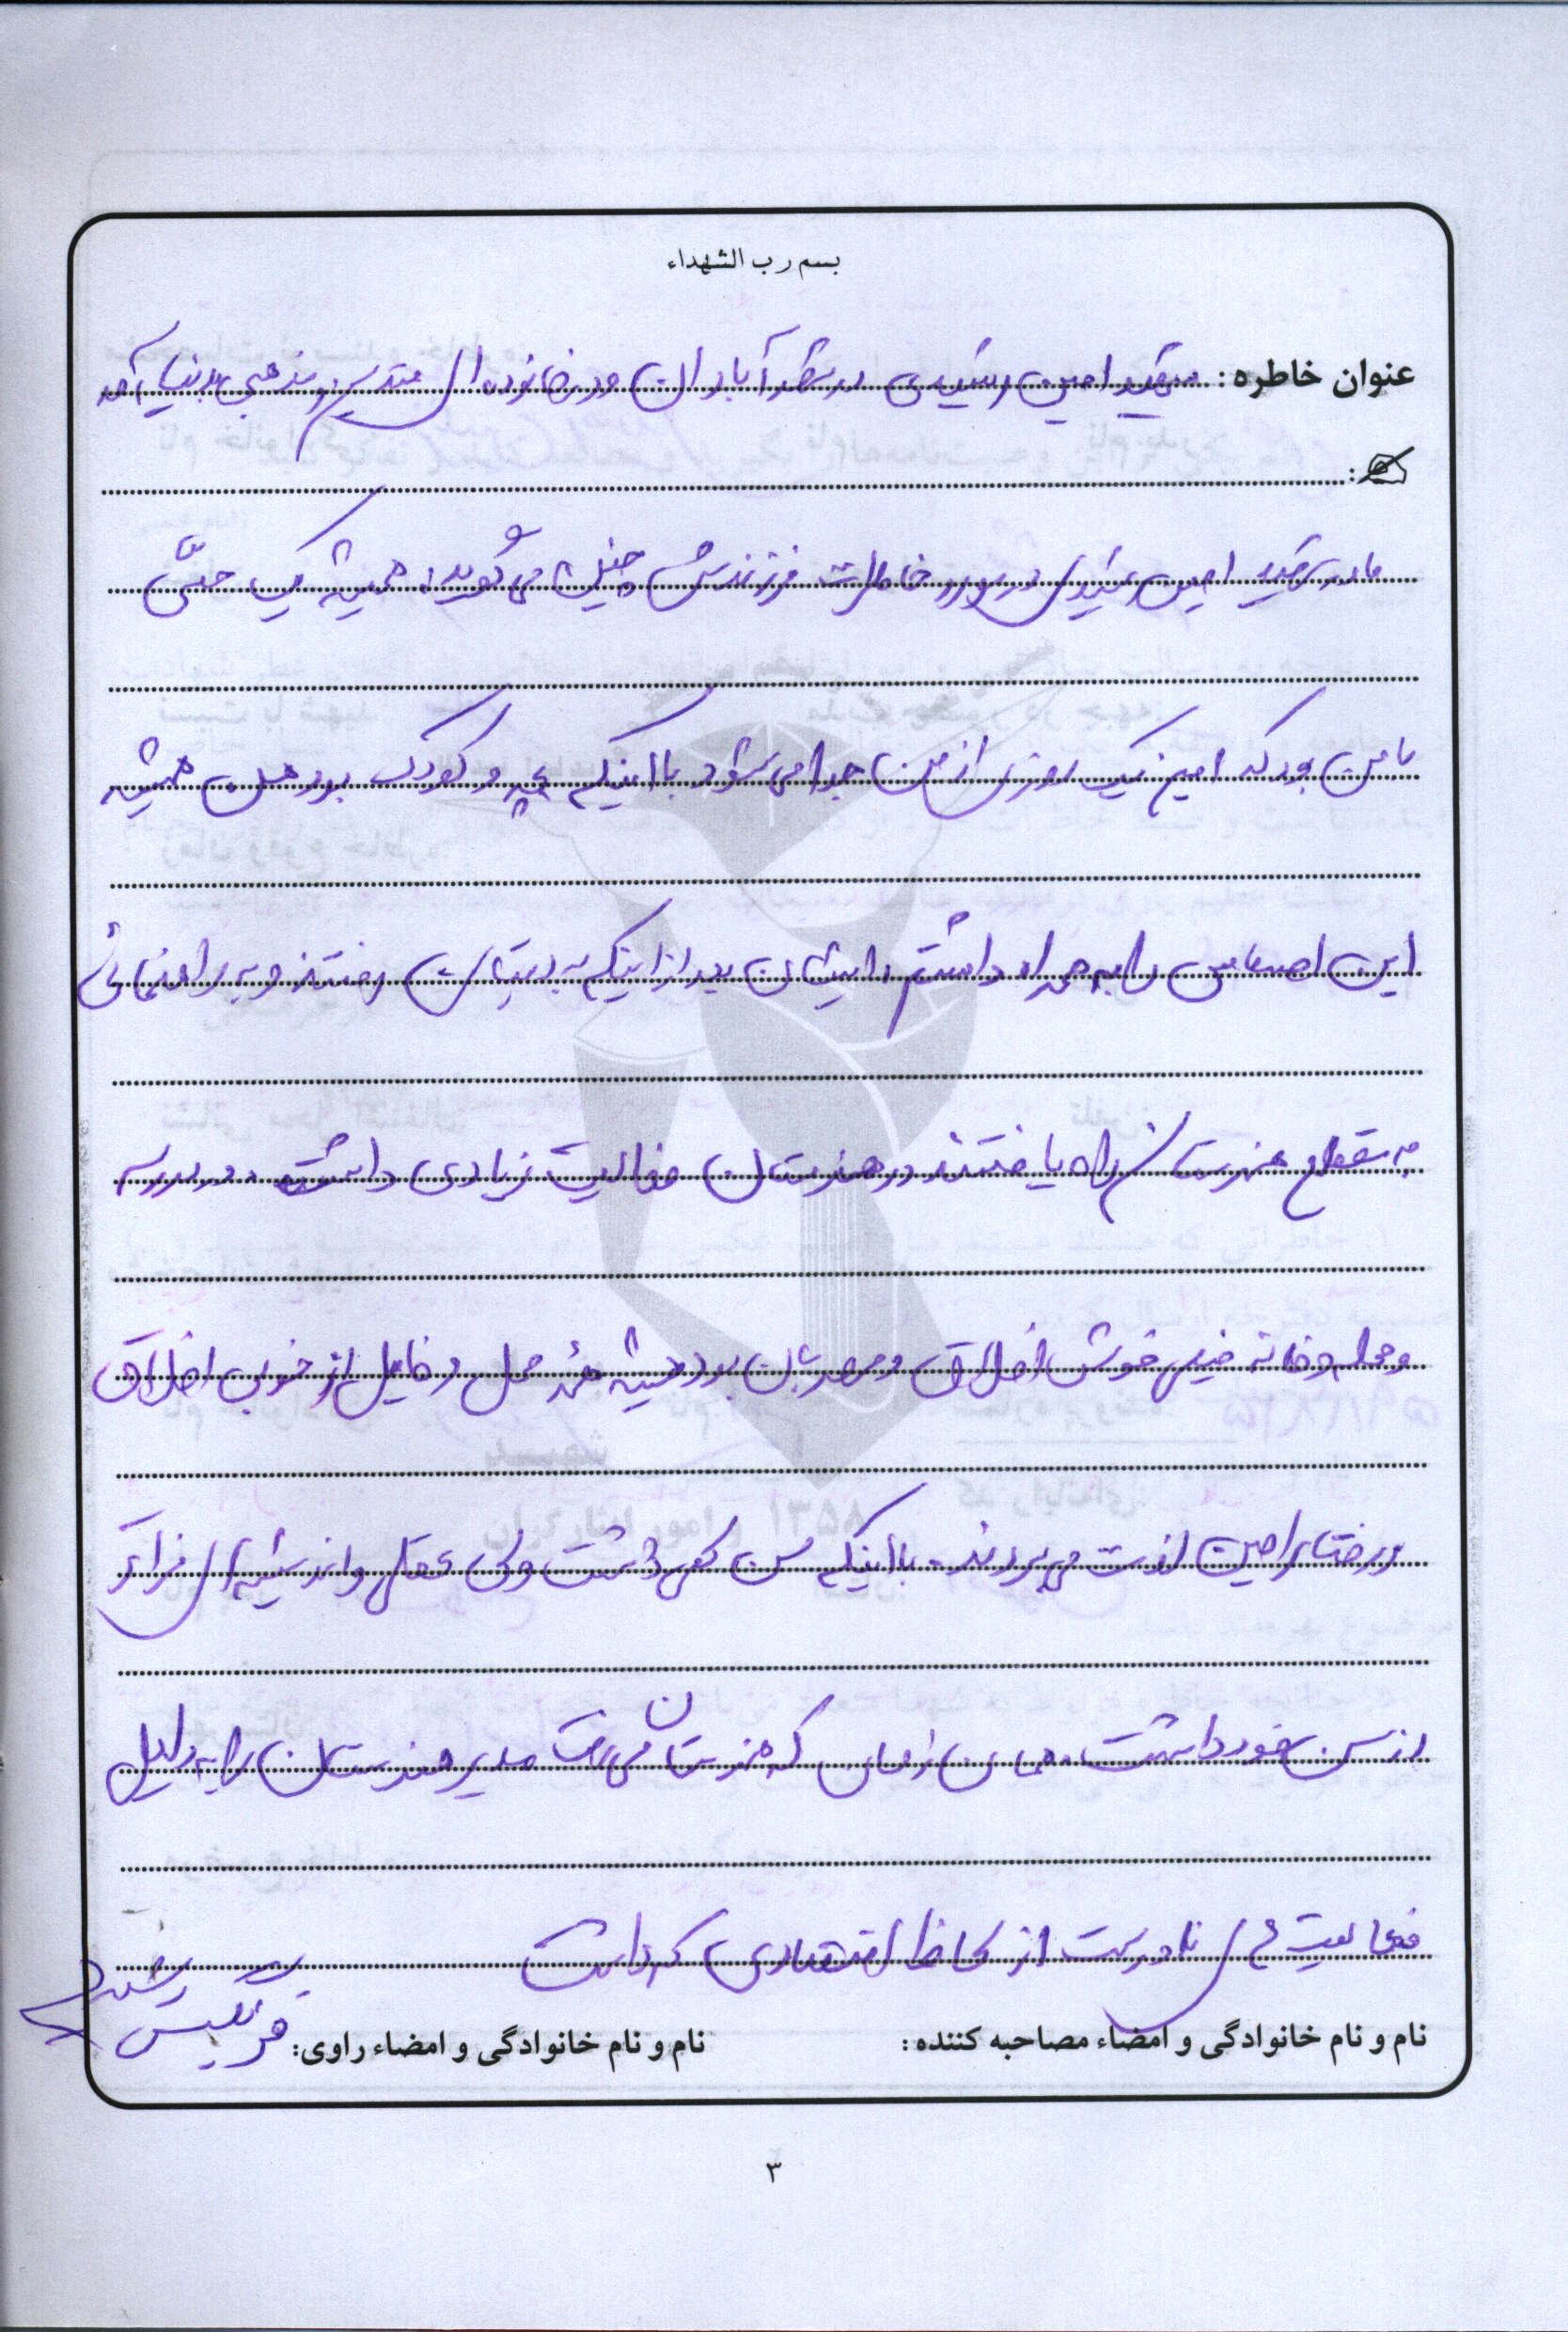 بسم رب الشهداء
عنوان خاطره: شهید امین رشیدی در شهر آبادان و در خانواده ای متدین و مذهبی بدنیا آمد
مادر شهید امین رشیدی در مورد خاطرات فرزندش چنین می گوید، همیشه یک حسّی
با من بود که امین یک روزی از من جدا می شود با اینکه بچه و کودک بود من همیشه
این احساس را به همراه داشتم، ایشان بعد از اینکه به دبستان رفتند و به راهنمائی
به مقطع هنرستان راه یافتند در هنرستان فعالیت زیادی داشت. در مدرسه
و محله و خانه خیلی خوش اخلاق و مهربان بود همیشه همه محل و فامیل از خوبی اخلاق
و رفتار امین لذت می بردند. با اینکه سن کمی داشت ولی عقل و اندیشه ای فراتر
از سن خود داشت. همان زمان که هنرستان می رفت مدیر هنرستان را به دلیل
فعالیت های نادرست از لحاظ اقتصادی که داشت
نام و نام خانوادگی و امضاء مصاحبه کننده:
نام و نام خانوادگی و امضاء راوی: فرنگیس رشیدی
۳